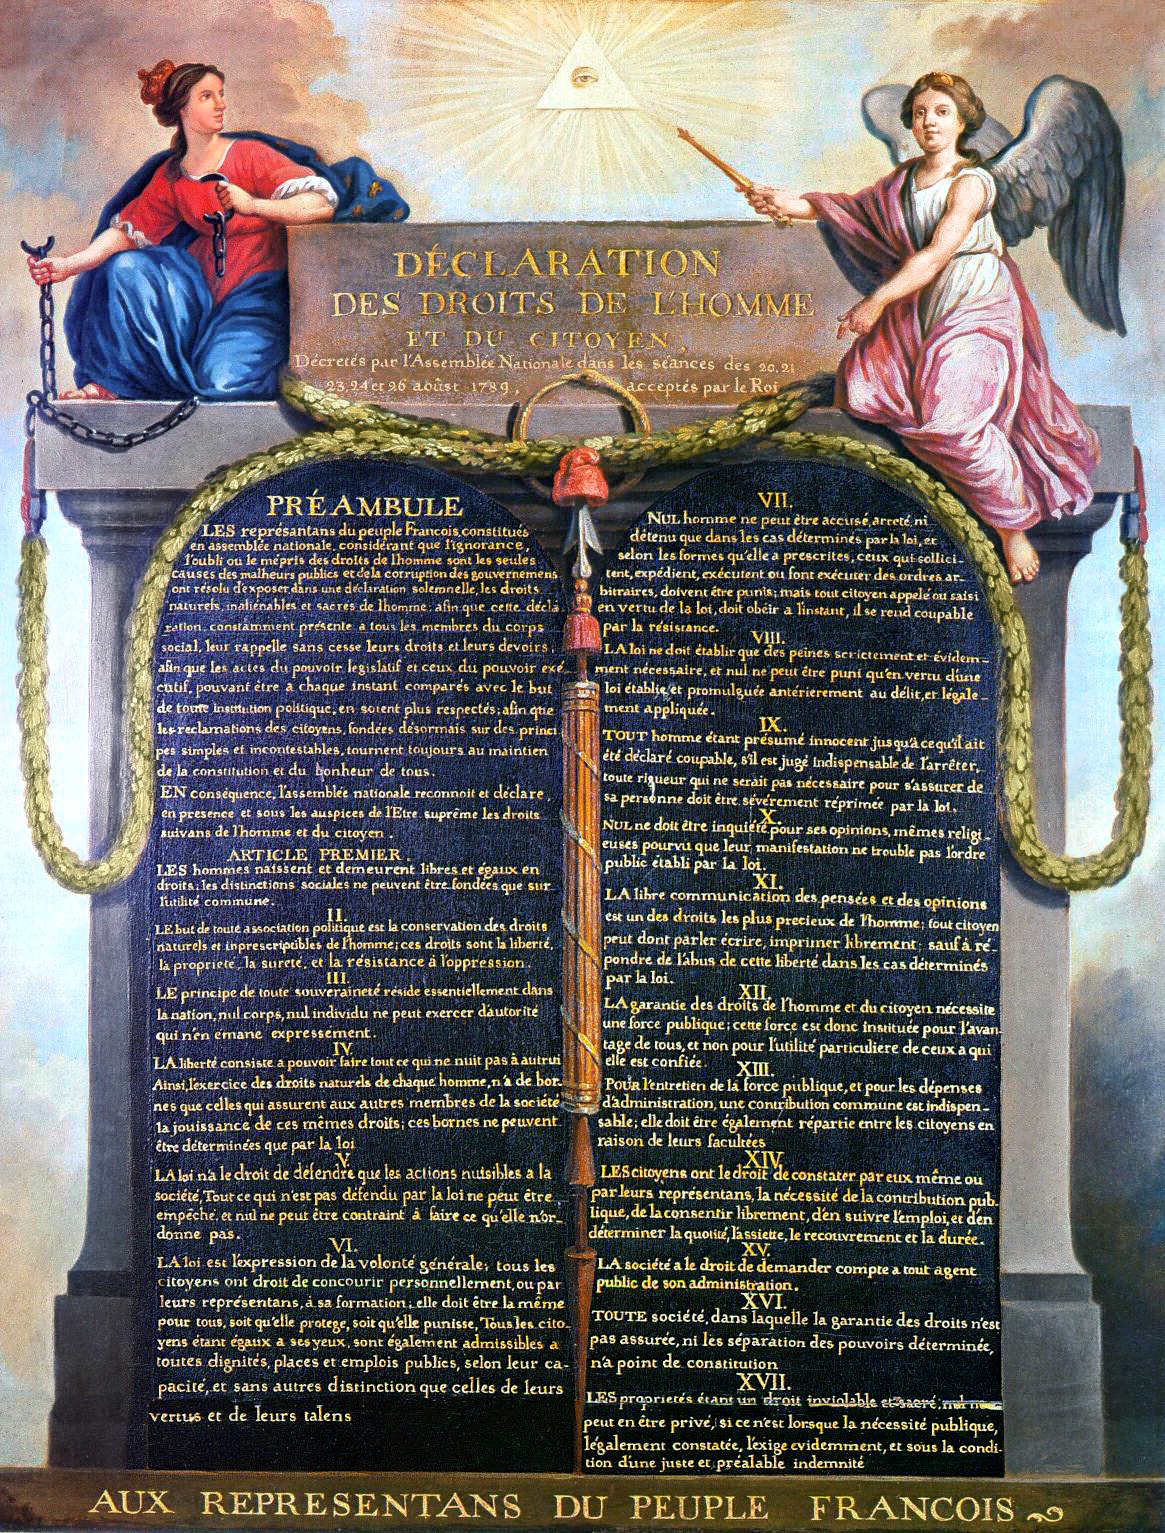 DÉCLARATION
DES DROITS DE L'HOMME
ET DU CITOYEN,
Décretés par l'Assemblée Nationale dans les séances des 20, 21
23, 24 et 26 août 1789, acceptés par le Roi
PRÉAMBULE
LES représantans du peuple Francois, constitués
en assemblée nationale, considérant que l'ignorance,
l'oubli ou le mépris des droits de l'homme sont les seules
causes des malheurs publics et de la corruption des gouvernemens
ont résolu d'exposer dans une déclaration solemnelle, les droits
naturels, inaliénables et sacrés de l'homme; afin que cette décla
ration, constamment présente a tous les membres du corps
social, leur rappelle sans cesse leurs droits et leurs devoirs;
afin que les actes du pouvoir législatif et ceux du pouvoir exé
cutif, pouvant être a chaque instant comparés avec le but
de toute institution politique, en soient plus respectés; afin que
les reclamations des citoyens, fondées désormais sur des princi
pes simples et incontestables, tournent toujours au maintien
de la constitution et du bonheur de tous.
EN conséquence, l'assemblée nationale reconnoit et déclare,
en presence et sous les auspices de l'Etre suprême les droits
suivans de l'homme et du citoyen.
ARTICLE PREMIER.
LES hommes naissent et demeurent libres et égaux en
droits; les distinctions sociales ne peuvent être fondées que sur
l'utilité commune.
II.
LE but de toute association politique est la conservation des droits
naturels et inprescriptibles de l'homme; ces droits sont la liberté,
la propriete, la sureté, et la résistance à l'oppression.
III.
LE principe de toute souveraineté réside essentiellement dans
la nation, nul corps, nul individu ne peut exercer d'autorité
qui n'en emane expressement.
IV.
LA liberté consiste a pouvoir faire tout ce qui ne nuit pas à autrui
Ainsi, l'exercice des droits naturels de chaque homme, n'a de bor-
nes que celles qui assurent aux autres membres de la société
la jouissance de ces mêmes droits; ces bornes ne peuvent
être déterminées que par la loi
V.
LA loi n'a le droit de défendre que les actions nuisibles a la
société, Tout ce qui n'est pas défendu par la loi ne peut être
empêché, et nul ne peut être contraint à faire ce qu'elle n'or-
donne pas.
VI.
LA loi est l'expression de la volonté générale; tous les
citoyens ont droit de concourir personnellement, ou par
leurs représentans, à sa formation; elle doit être la même
pour tous, soit qu'elle protege, soit qu'elle punisse, Tous les cito-
yens étant égaux a ses yeux, sont également admissibles a
toutes dignités, places et emplois publics, selon leur ca-
pacité, et sans autres distinction que celles de leurs
vertus et de leurs talens
VII.
NUL homme ne peut être accusé, arreté, ni
détenu que dans les cas déterminés par la loi, et
selon les formes qu'elle a prescrites, ceux qui sollici-
tent, expédient, exécutent ou font exécuter des ordres ar-
bitraires, doivent être punis; mais tout citoyen appelé ou saisi
en vertu de la loi, doit obéir a l'instant, il se rend coupable
par la résistance.
VIII.
LA loi ne doit établir que des peines strictement et évidem-
ment nécessaire, et nul ne peut être puni qu'en vertu d'une
loi établie et promulguée antérierement au délit, et légale-
ment appliquée.
IX.
TOUT homme étant présumé innocent jusqu'a ce qu'il ait
été déclaré coupable, s'il est jugé indispensable de l'arrêter,
toute rigueur qui ne serait pas nécessaire pour s'assurer de
sa personne doit être sévèrement réprimée par la loi.
X.
NUL ne doit être inquiété pour ses opinions, mêmes religi-
euses pourvu que leur manifestation ne trouble pas l'ordre
public établi par la loi.
XI.
LA libre communication des pensées et des opinions
est un des droits les plus precieux de l'homme; tout citoyen
peut dont parler écrire, imprimer librement; sauf à ré-
pondre de l'abus de cette liberté dans les cas déterminés
par la loi.
XII.
LA garantie des droits de l'homme et du citoyen nécessite
une force publique; cette force est donc instituée pour l'avan-
tage de tous, et non pour l'utilité particuliere de ceux a qui
elle est confiée.
XIII.
POUR l'entretien de la force publique, et pour les dépenses
d'administration, une contribution commune est indispen-
sable; elle doit être également répartie entre les citoyens en
raison de leurs facultées
XIV.
LES citoyens ont le droit de constater par eux même ou
par leurs représentans, la nécessité de la contribution pub-
lique, de la consentir librement, d'en suivre l'emploi, et d'en
déterminer la quotité, l'assiette, le recouvrement et la durée.
XV.
LA société a le droit de demander compte a tout agent
public de son administration.
XVI.
TOUTE société, dans laquelle la garantie des droits n'est
pas assurée, ni les séparation des pouvoirs déterminée,
n'a point de constitution
XVII.
LES proprietés étant un droit inviolable et sacré, nul ne
peut en être privé, si ce n'est lorsque la nécessité publique,
légalement constatée, l'exige evidemment, et sous la condi-
tion d'une juste et préalable indemnité
AUX REPRESENTANS DU PEUPLE FRANCOIS